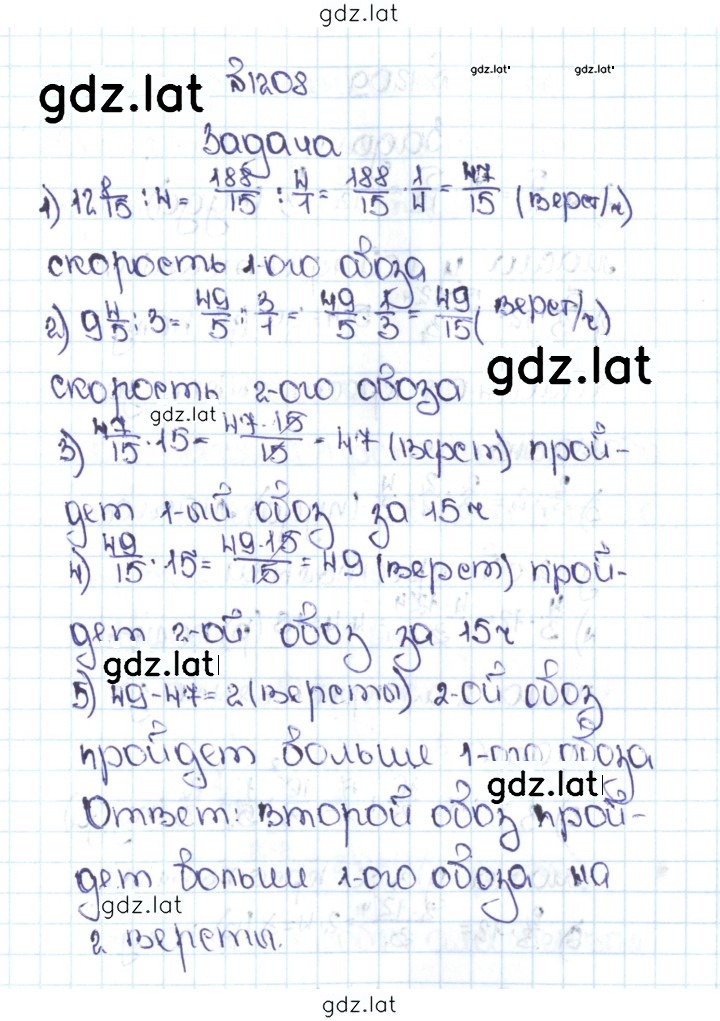 gdz.lat
gdz.lat
№1208
gdz.lat
gdz.lat
Задача
1) 12 8/15 : 4 = 188/15 : 4/1 = 188/15 · 1/4 = 47/15 (верст/ч)
скорость 1-ого обоза
2) 9 4/5 : 3 = 49/5 : 3/1 = 49/5 · 1/3 = 49/15 (верст/ч)
gdz.lat
скорость 2-ого овоза
gdz.lat
3) 47/15 · 15 = 47·15/15 = 47 (верст) прой-
дет 1-ый обоз за 15ч
4) 49/15 · 15 = 49·15/15 = 49 (верст) прой-
дет 2-ой обоз за 15ч
gdz.lat
5) 49-47=2 (версты) 2-ой обоз
пройдет больше 1-ого обоза
gdz.lat
Ответ: второй обоз прой-
дет больше 1-ого обоза на
gdz.lat
2 версты.
gdz.lat